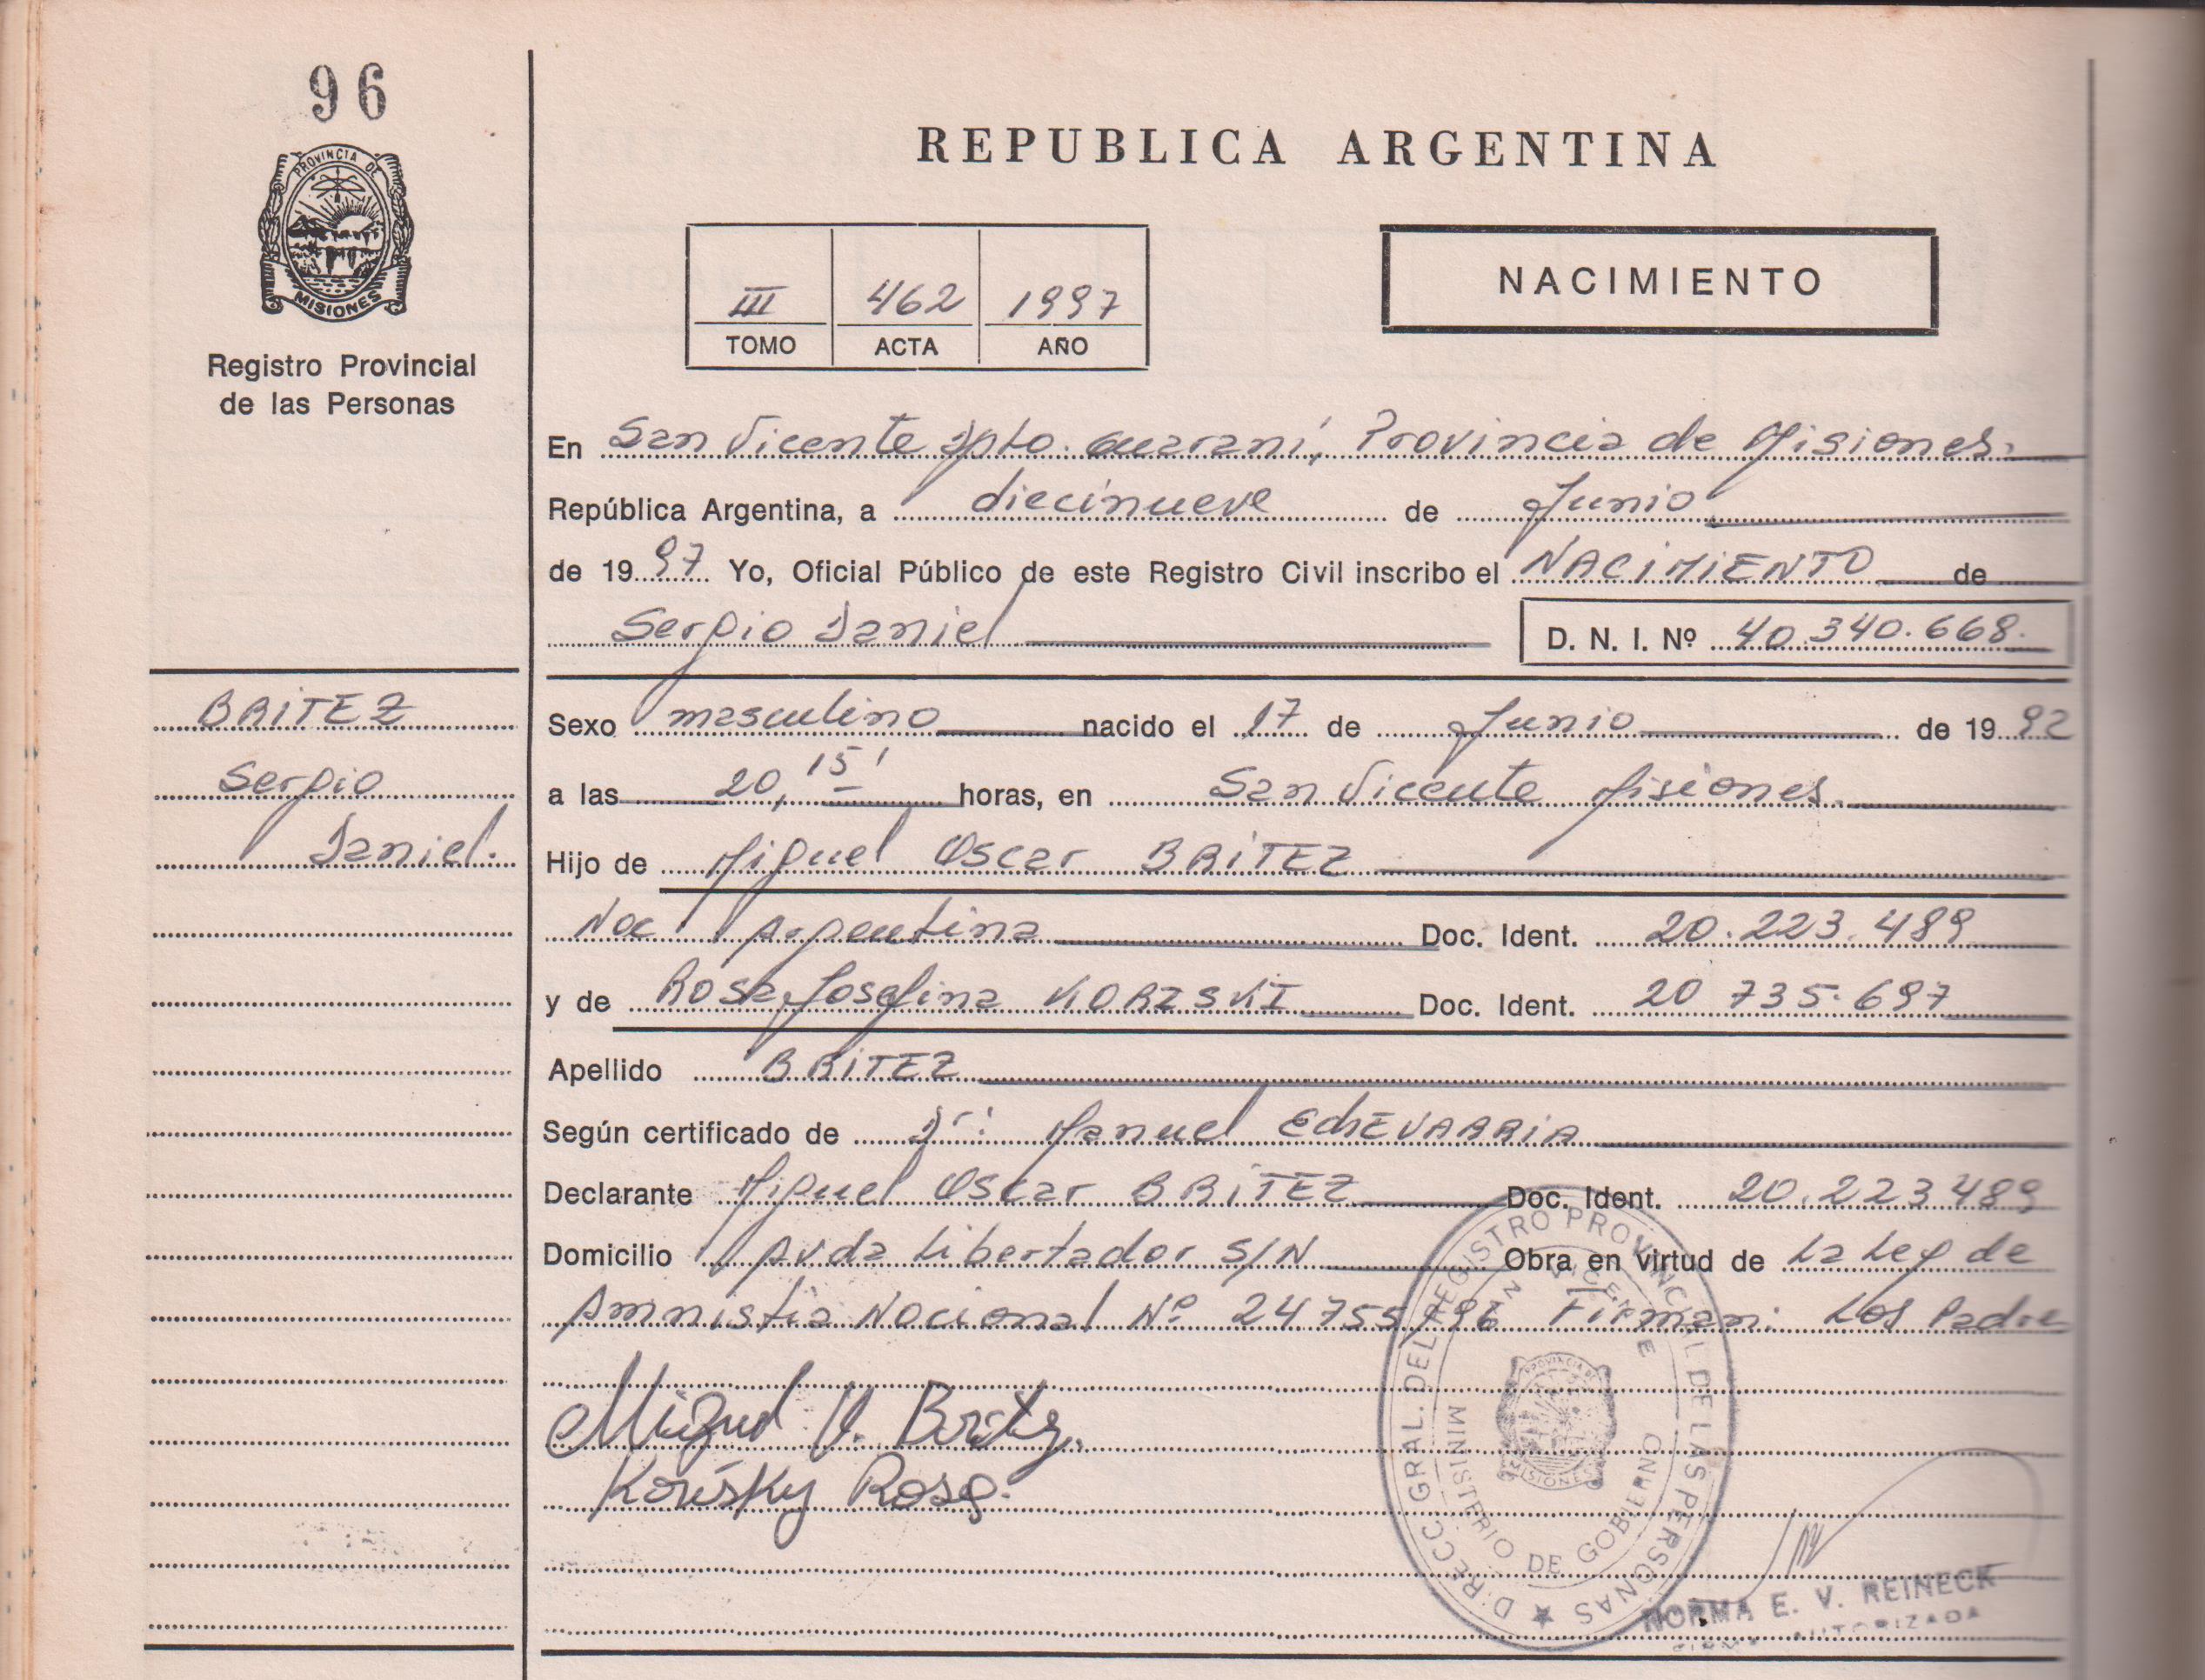 96
PROVINCIA DE
MISIONES
Registro Provincial
de las Personas
REPUBLICA ARGENTINA
III 462 1997
TOMO ACTA AÑO
NACIMIENTO
En San Vicente Dpto. Guaraní, Provincia de Misiones.
República Argentina, a diecinueve de Junio
de 1997 Yo, Oficial Público de este Registro Civil inscribo el NACIMIENTO de
Sergio Daniel D. N. I. Nº 40.340.668.
BRITEZ
Sergio
Daniel.
Sexo masculino nacido el 17 de Junio de 1992
a las 20,15' horas, en San Vicente Misiones.
Hijo de Miguel Oscar BRITEZ
Nac Argentina Doc. Ident. 20.223.489
y de Rosa Josefina KORZSKI Doc. Ident. 20 735.697
Apellido BRITEZ
Según certificado de Dr: Manuel EchEVARRIA
Declarante Miguel Oscar BRITEZ Doc. Ident. 20.223489
Domicilio Avda Libertador S/N Obra en virtud de La Ley de
Amnistia Nacional Nº 24755/96 Firman: Los Padre
Miguel O. Britez.
Korisky Rosa.
DIRECC. GRAL. DEL REGISTRO PROVINCIAL DE LAS PERSONAS
SAN VICENTE
MINISTERIO DE GOBIERNO
PROVINCIA DE
MISIONES
NORMA E. V. REINECK
FIRMA AUTORIZADA